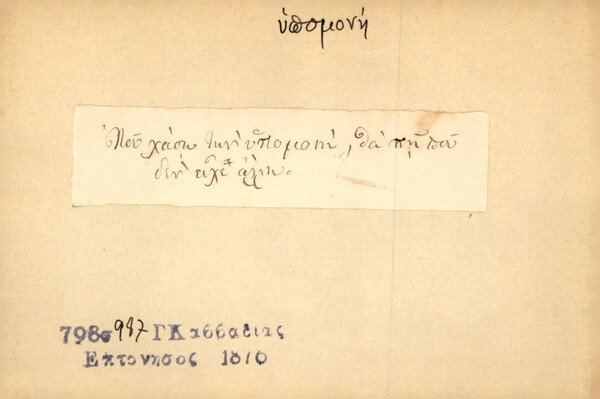 ὑπομονή
Ποῦ χάση τὴν ὑπομονή, θὰ πῇ ποῦ
δὲν εἶχε ἄλλη.
798σ 987 ΓΚασσαδιας
Επτονησος 1876